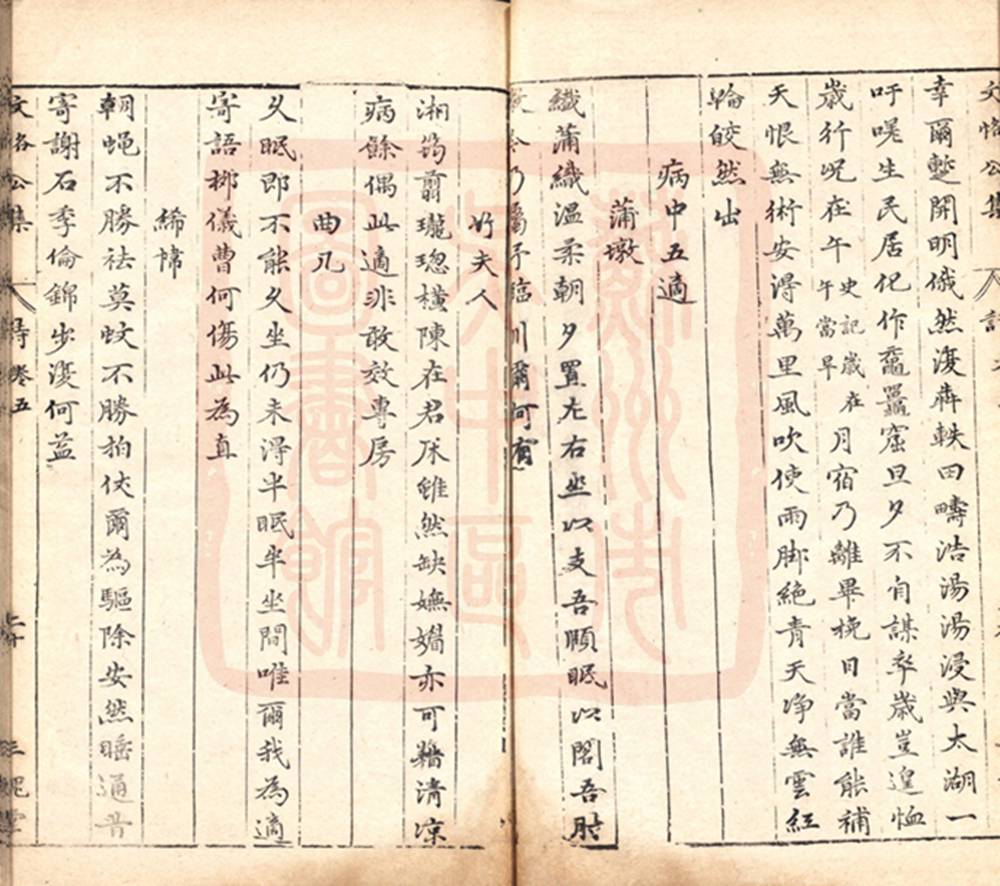 幸爾蹔開明俄然復犇軼田疇浩湯湯浸與太湖一
吁嗟生民居化作黿鼉窟旦夕不自謀卒歲豈遑恤
歲行况在午史記歲在午當旱月宿乃離畢挽日當誰能補
天恨無術安得萬里風吹使雨脚絶青天净無雲紅
輪皎然出
病中五適
蒲墩
織蒲織溫柔朝夕置左右坐以支吾頤眠以閣吾肘
竹夫人
湘筠翦瓏璁橫陳在君床雖然缺嫵媚亦可藉清凉
病餘偶此適非敢效專房
曲几
久眠即不能久坐仍未得半眠半坐間唯爾我為適
寄語梆儀曹何傷此為真
絺幃
朝蠅不勝袪莫蚊不勝拍伏爾為驅除安然睡通昔
寄謝石季倫錦步復何益
文恪公集 詩卷五